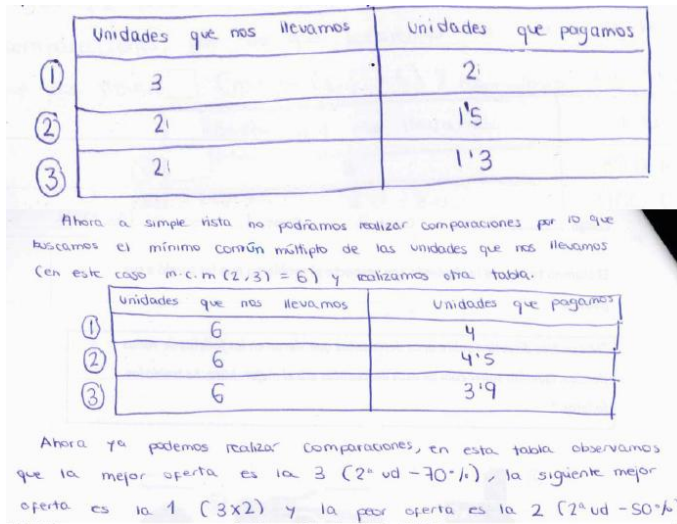 Unidades que nos llevamos Unidades que pagamos
① 3 2
② 2 1'5
③ 2 1'3
Ahora a simple vista no podríamos realizar comparaciones por lo que
buscamos el mínimo común múltiplo de las unidades que nos llevamos
(en este caso m.c.m (2,3) = 6) y realizamos otra tabla.
Unidades que nos llevamos Unidades que pagamos
① 6 4
② 6 4'5
③ 6 3'9
Ahora ya podemos realizar comparaciones, en esta tabla observamos
que la mejor oferta es la 3 (2ª ud -70%), la siguiente mejor
oferta es la 1 (3x2) y la peor oferta es la 2 (2ª ud -50%